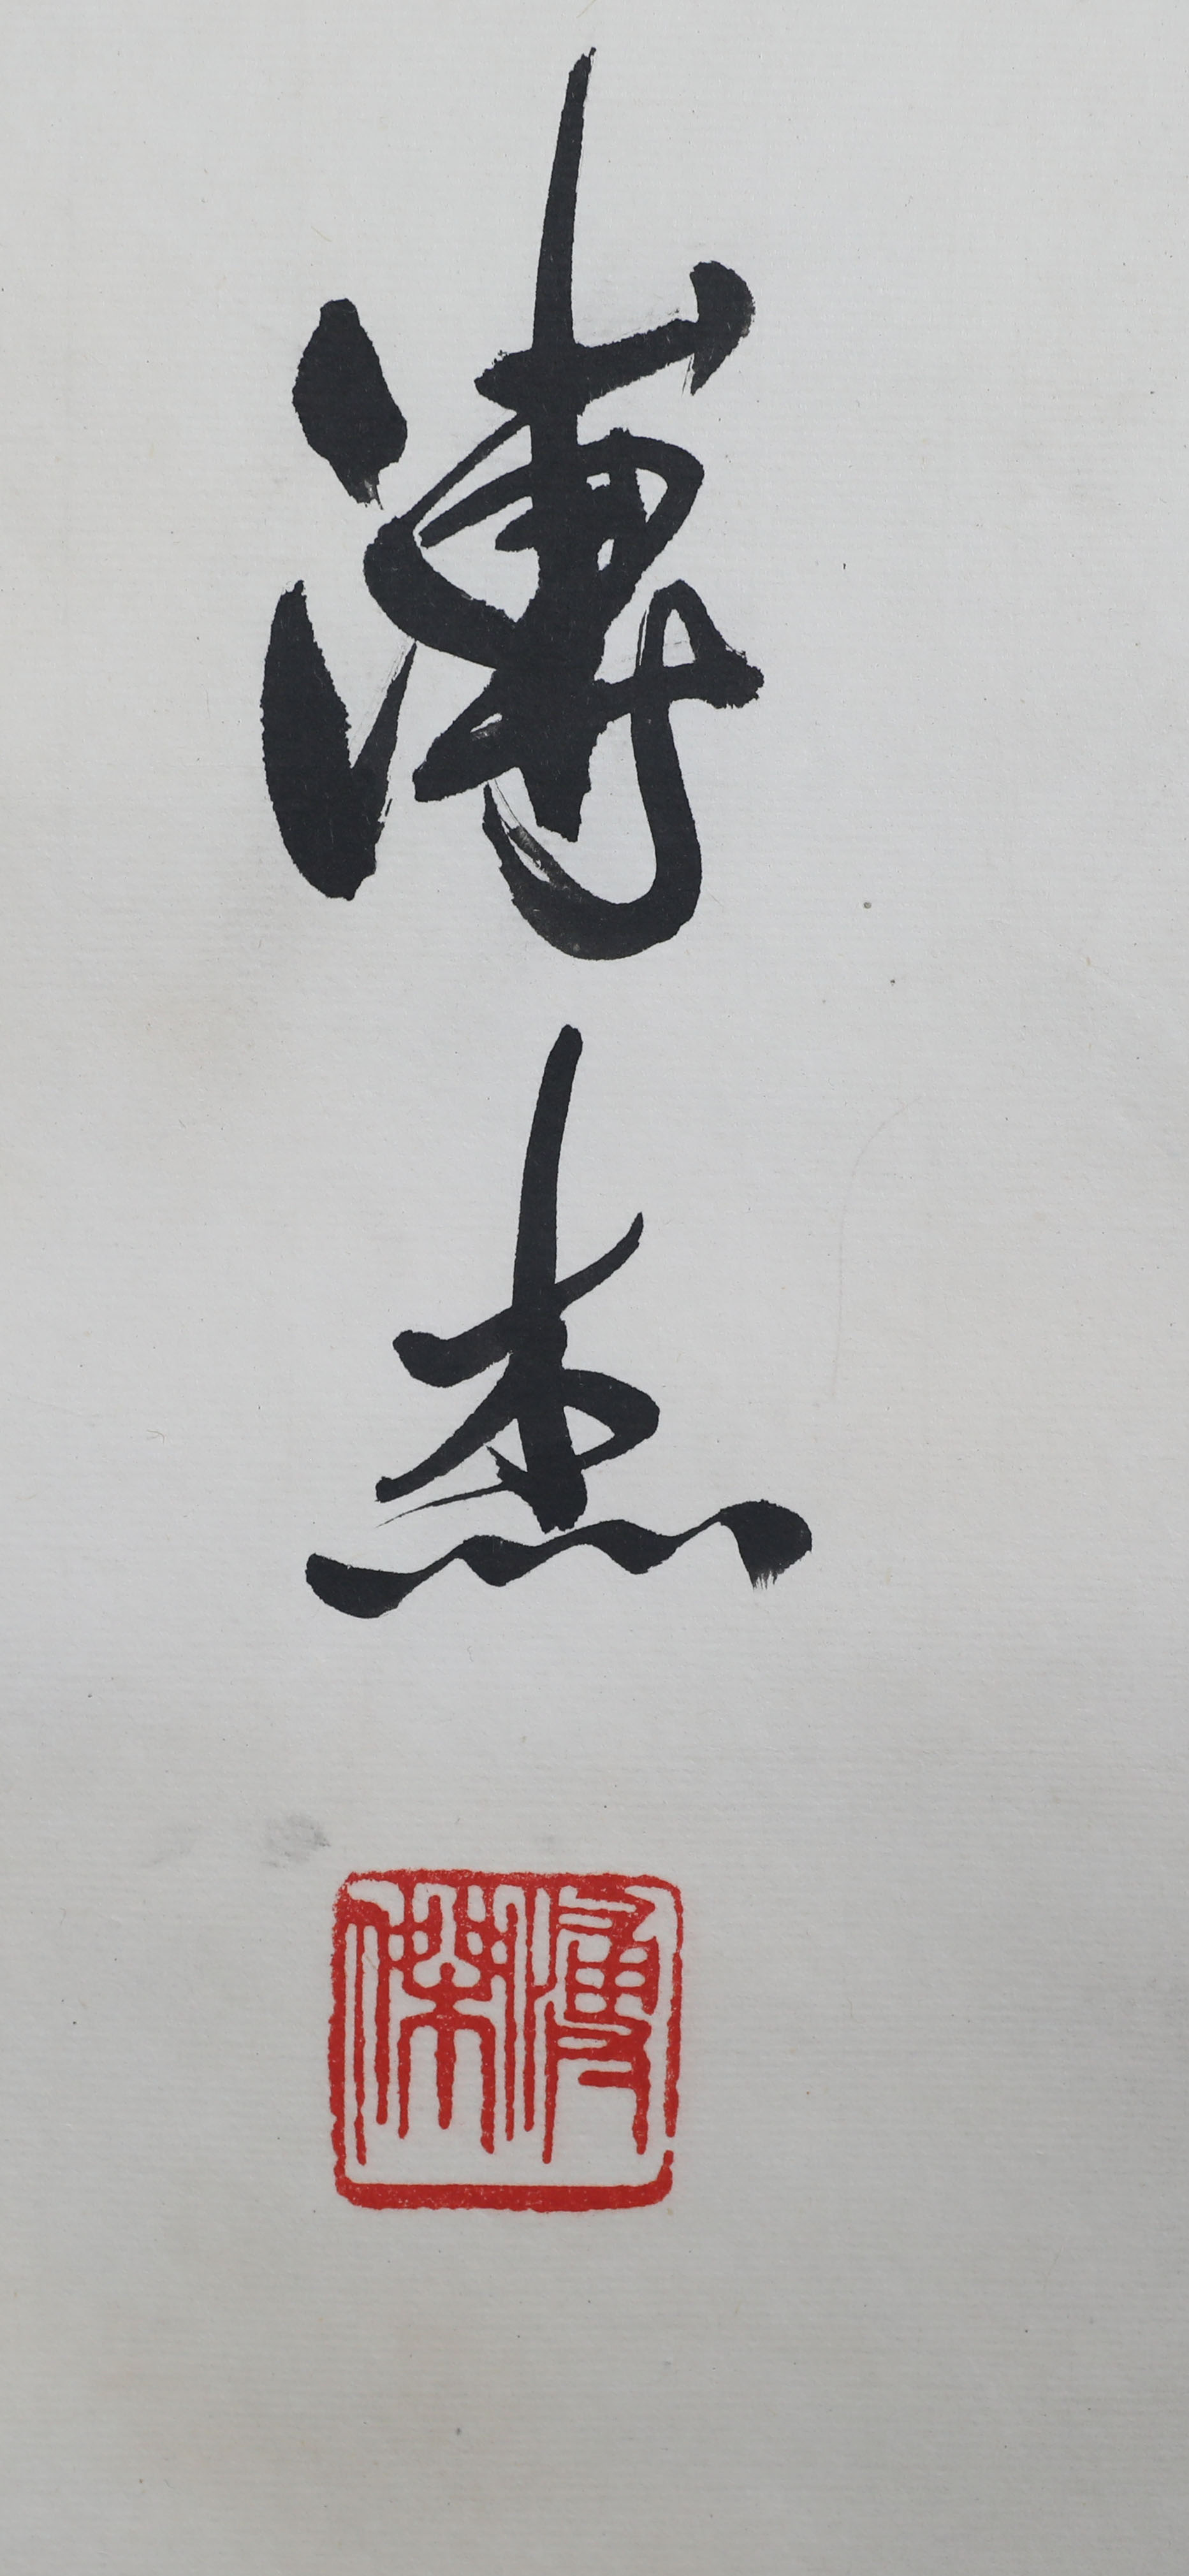 溥杰
溥傑